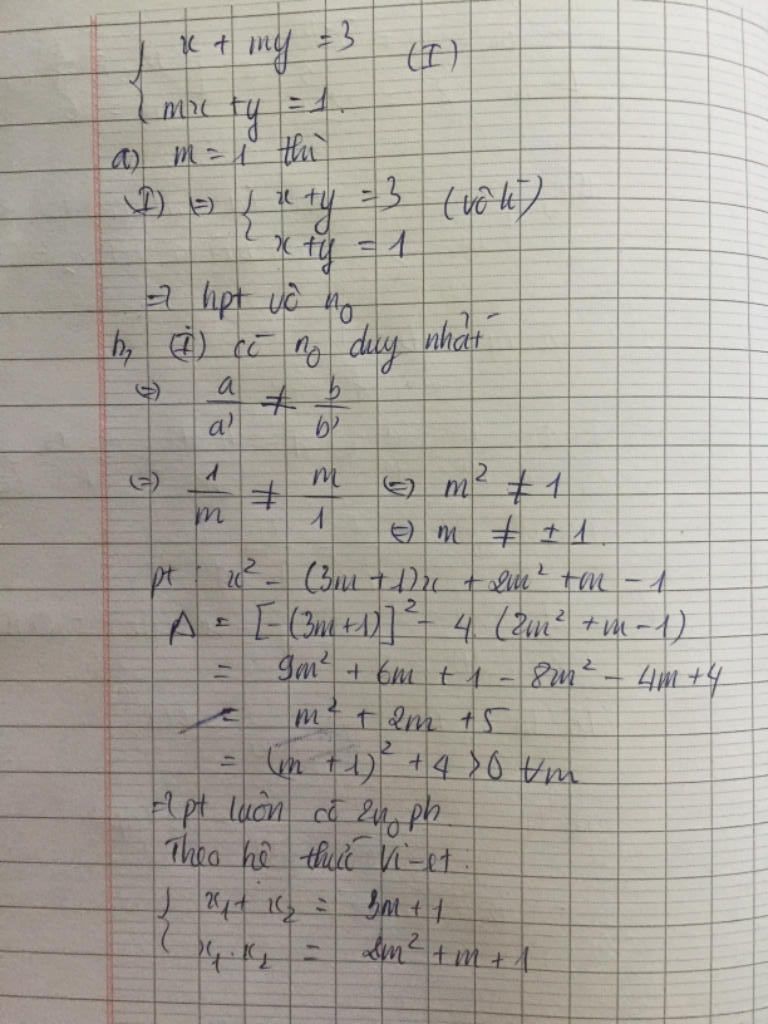 { x + my = 3
mx + y = 1. (I)
a) m = 1 thì
(I) ⇔ { x + y = 3 (vô lí)
x + y = 1
⇒ hpt vô n₀
b, (I) có n₀ duy nhất
⇔ a/a' ≠ b/b'
⇔ 1/m ≠ m/1 ⇔ m² ≠ 1
⇔ m ≠ ±1.
pt : x² - (3m + 1)x + 2m² + m - 1
Δ = [-(3m+1)]² - 4. (2m² + m - 1)
= 9m² + 6m + 1 - 8m² - 4m + 4
= m² + 2m + 5
= (m + 1)² + 4 > 0 ∀m
⇒ pt luôn có 2n₀ pb.
Theo hê thức Vi-et:
{ x₁ + x₂ = 3m + 1
x₁ . x₂ = 2m² + m + 1